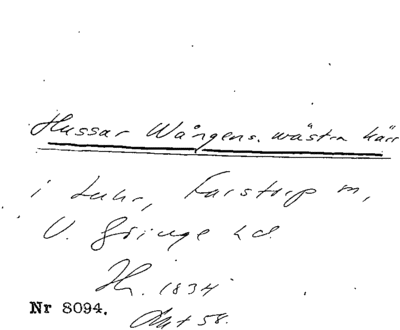 Hussar Wångens wästra kärr
i Luhr, Farstorp m,
V. Göinge hd.
Hr. 1834
Nr 8094. Akt 58.